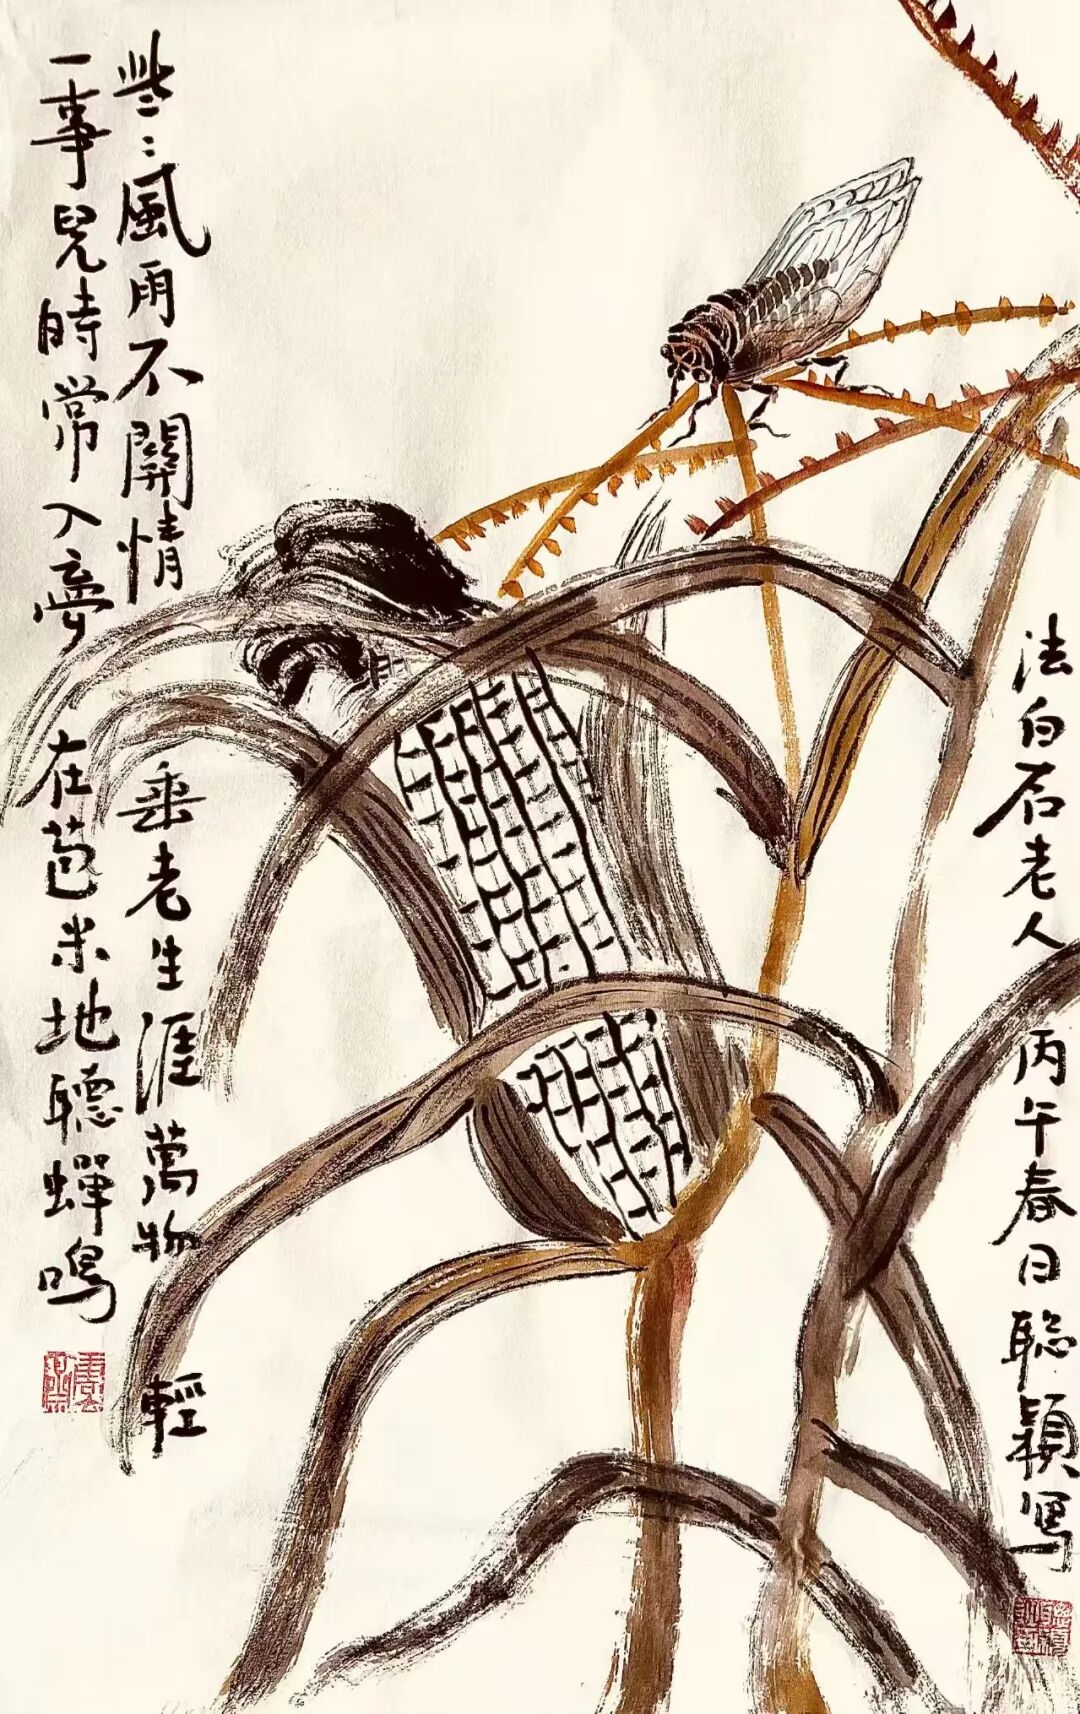 法白石老人 丙午春日聰穎寫
些〻風雨不関情 垂老生涯萬物輕
一事兒時常入夢 在苞米地聽蟬鳴